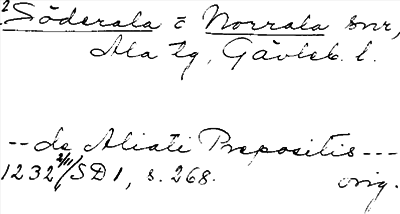 2 Söderala o Norrala snr,
Ala tg, Gävleb. l.
-- de Aliati Prepositis ---
1232 2/11/SD1, s. 268. orig.